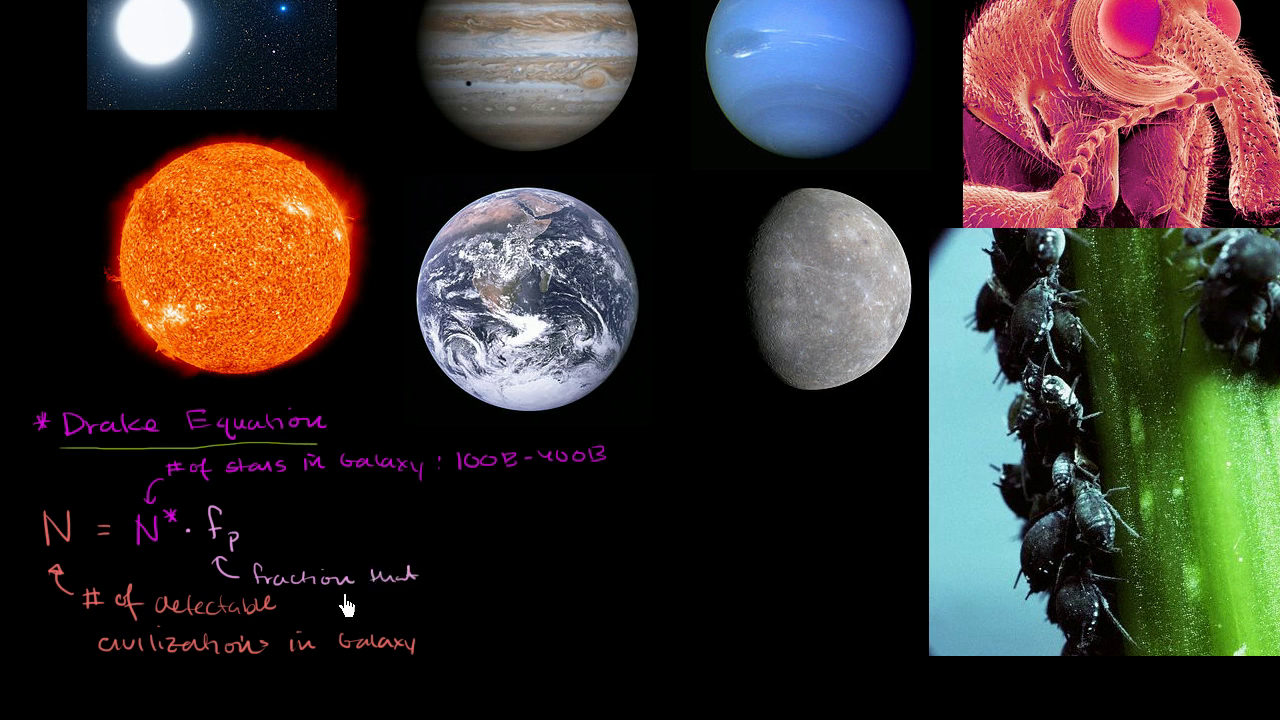 * Drake Equation
# of stars in Galaxy : 100B-400B
N = N* · fp
fraction that
# of detectable
civilizations in Galaxy